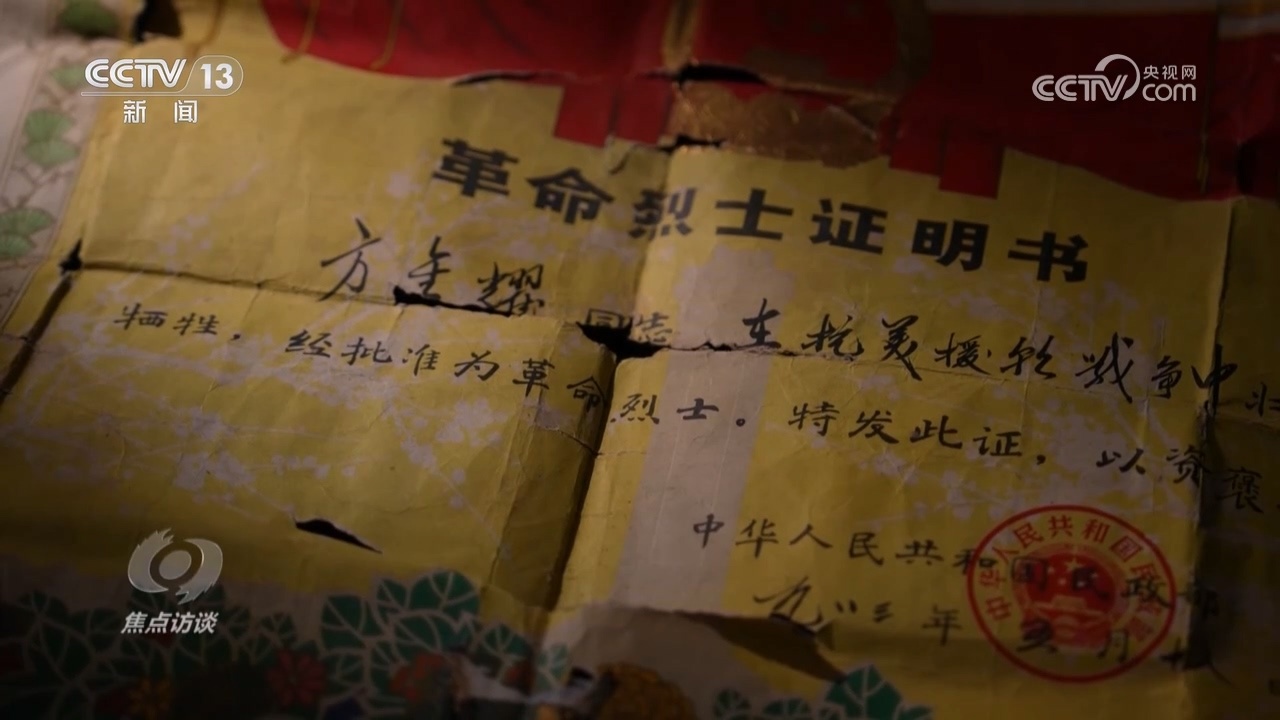 CCTV 13
新闻
央视网
CCTV.com
革命烈士证明书
方金耀同志,在抗美援朝战争中壮
牺牲,经批准为革命烈士。特发此证,以资褒
中华人民共和国民政部
九八三年 月
中华人民共和国民
焦点访谈